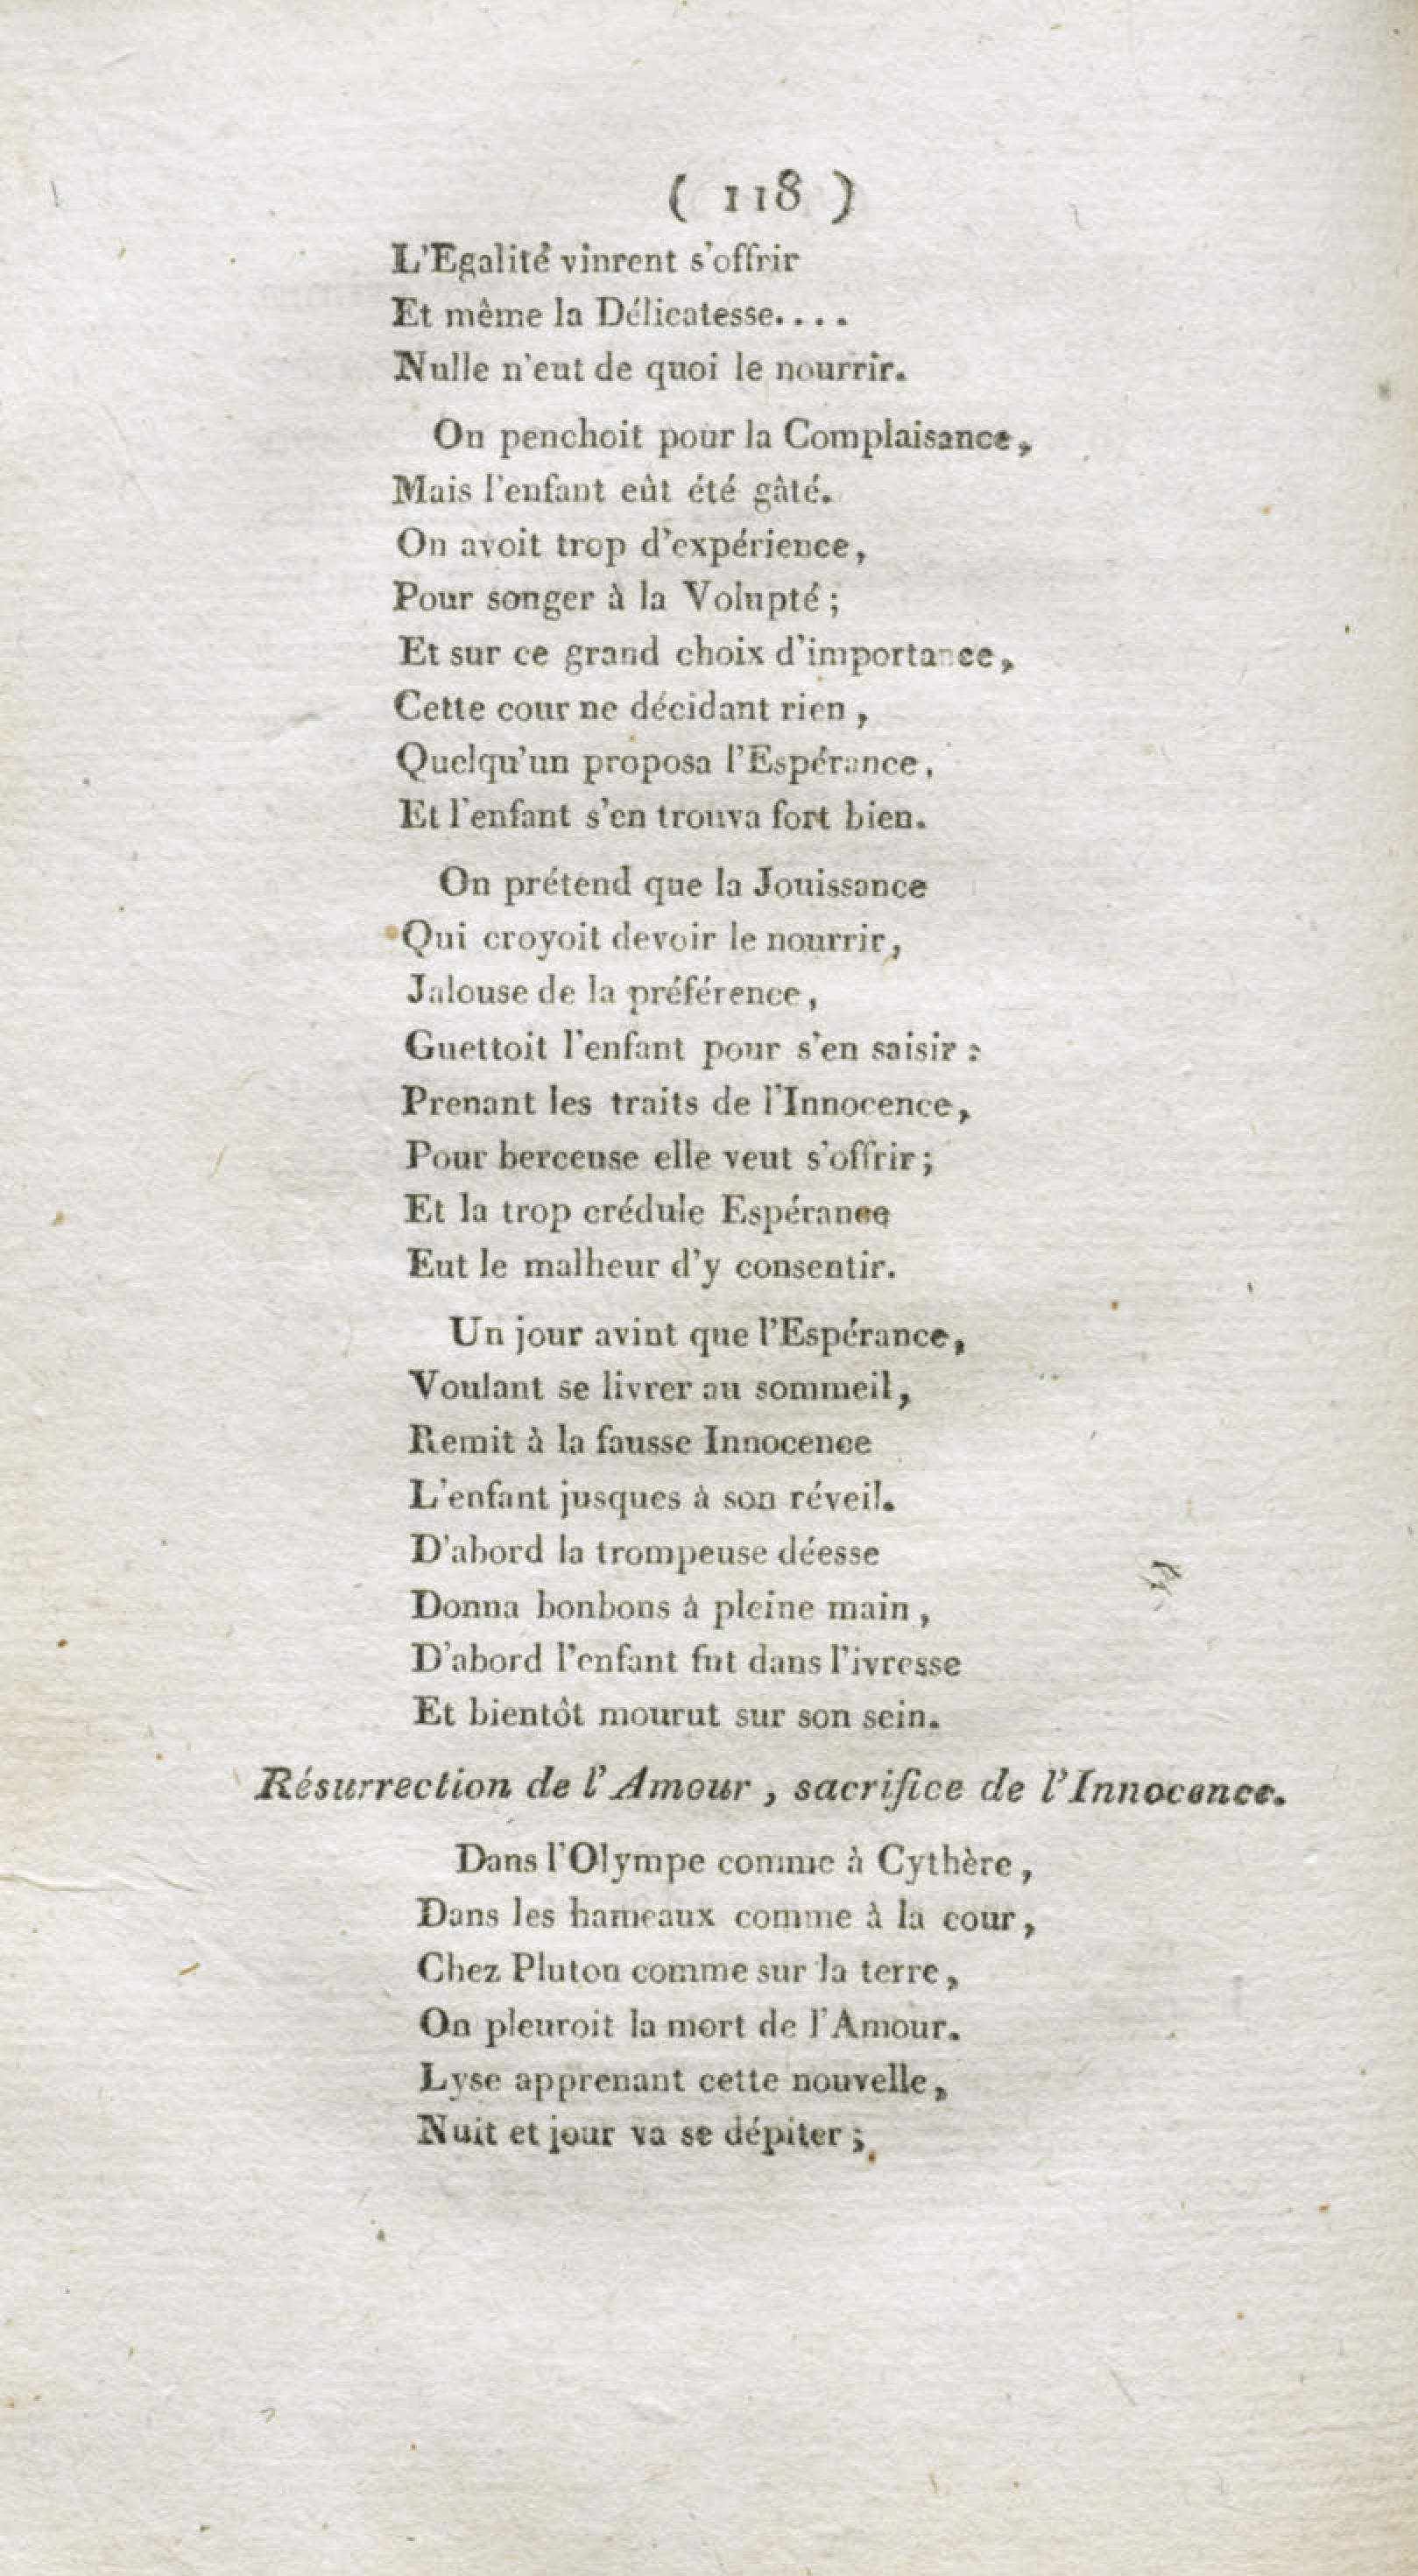 ( 118 )
L'Egalité vinrent s'offrir
Et même la Délicatesse....
Nulle n'eut de quoi le nourrir.
On penchoit pour la Complaisance,
Mais l'enfant eût été gâté.
On avoit trop d'expérience,
Pour songer à la Volupté;
Et sur ce grand choix d'importance,
Cette cour ne décidant rien,
Quelqu'un proposa l'Espérance,
Et l'enfant s'en trouva fort bien.
On prétend que la Jouissance
Qui croyoit devoir le nourrir,
Jalouse de la préférence,
Guettoit l'enfant pour s'en saisir:
Prenant les traits de l'Innocence,
Pour berceuse elle veut s'offrir;
Et la trop crédule Espérance
Eut le malheur d'y consentir.
Un jour avint que l'Espérance,
Voulant se livrer au sommeil,
Remit à la fausse Innocence
L'enfant jusques à son réveil.
D'abord la trompeuse déesse
Donna bonbons à pleine main,
D'abord l'enfant fut dans l'ivresse
Et bientôt mourut sur son sein.
Résurrection de l'Amour, sacrifice de l'Innocence.
Dans l'Olympe comme à Cythère,
Dans les hameaux comme à la cour,
Chez Pluton comme sur la terre,
On pleuroit la mort de l'Amour.
Lyse apprenant cette nouvelle,
Nuit et jour va se dépiter;